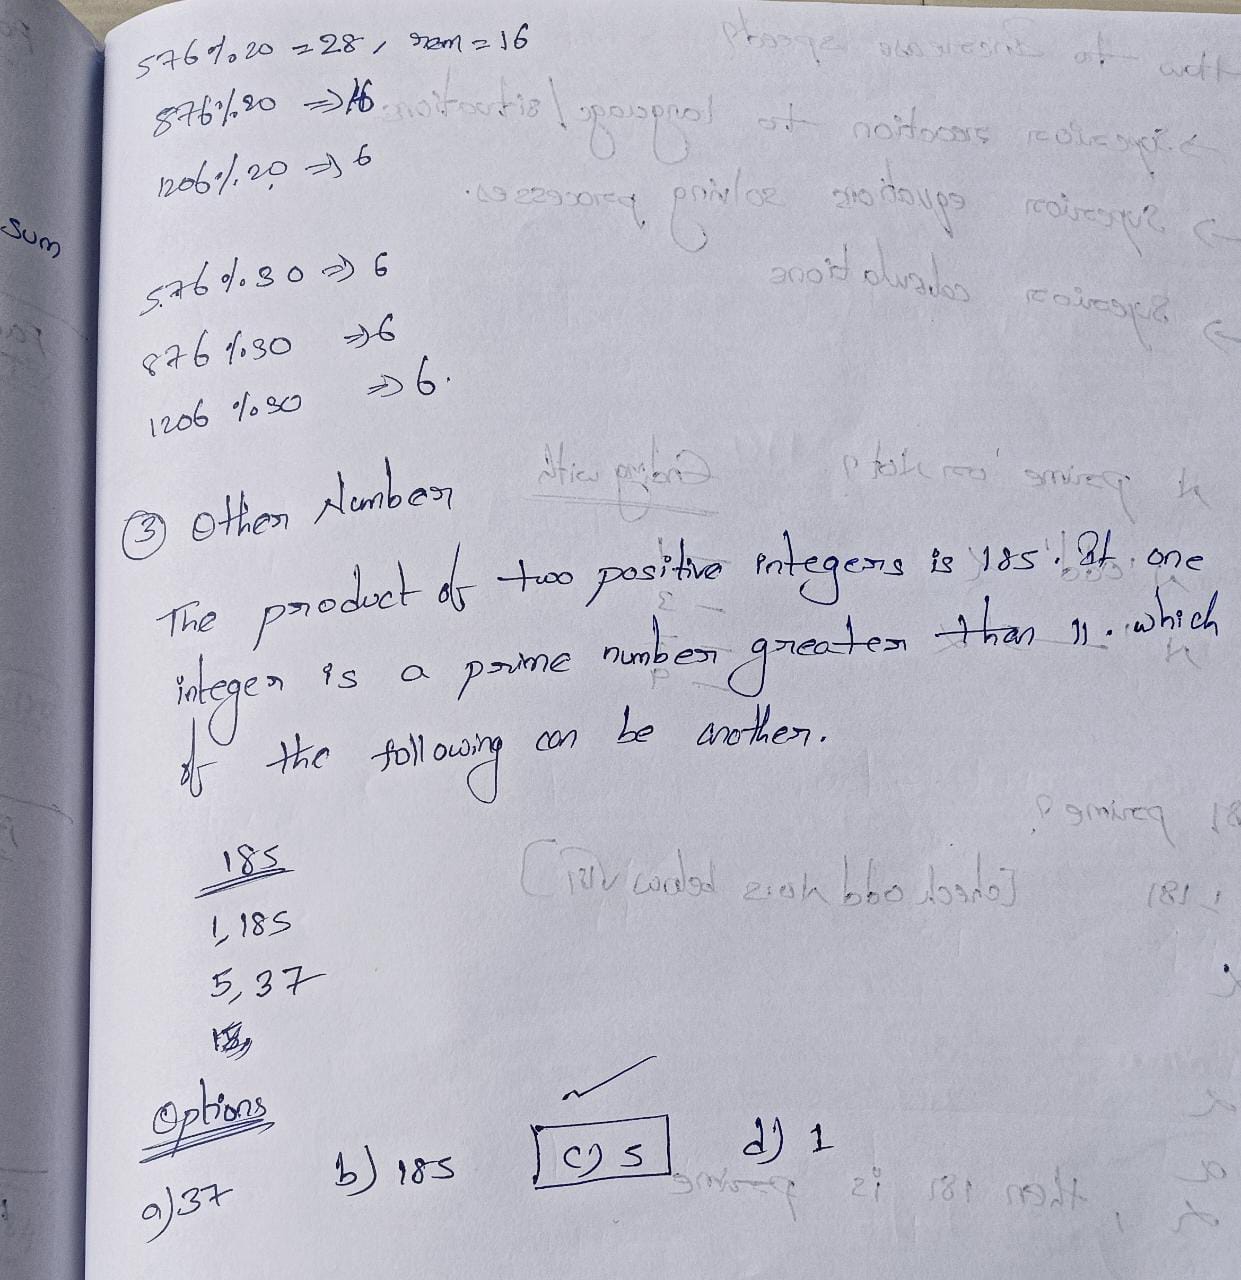 Sum
576 % 20 = 28, rem = 16
876 % 20 ⇒ 16
1206 % 20 ⇒ 6
576 % 30 ⇒ 6
876 % 30 ⇒ 6
1206 % 30 ⇒ 6.
③ Other Number
The product of two positive integers is 185. If one
integer is a prime number greater than 11. which
of the following can be another.
185
1, 185
5, 37
Options
a) 37 b) 185 c) 5 d) 1